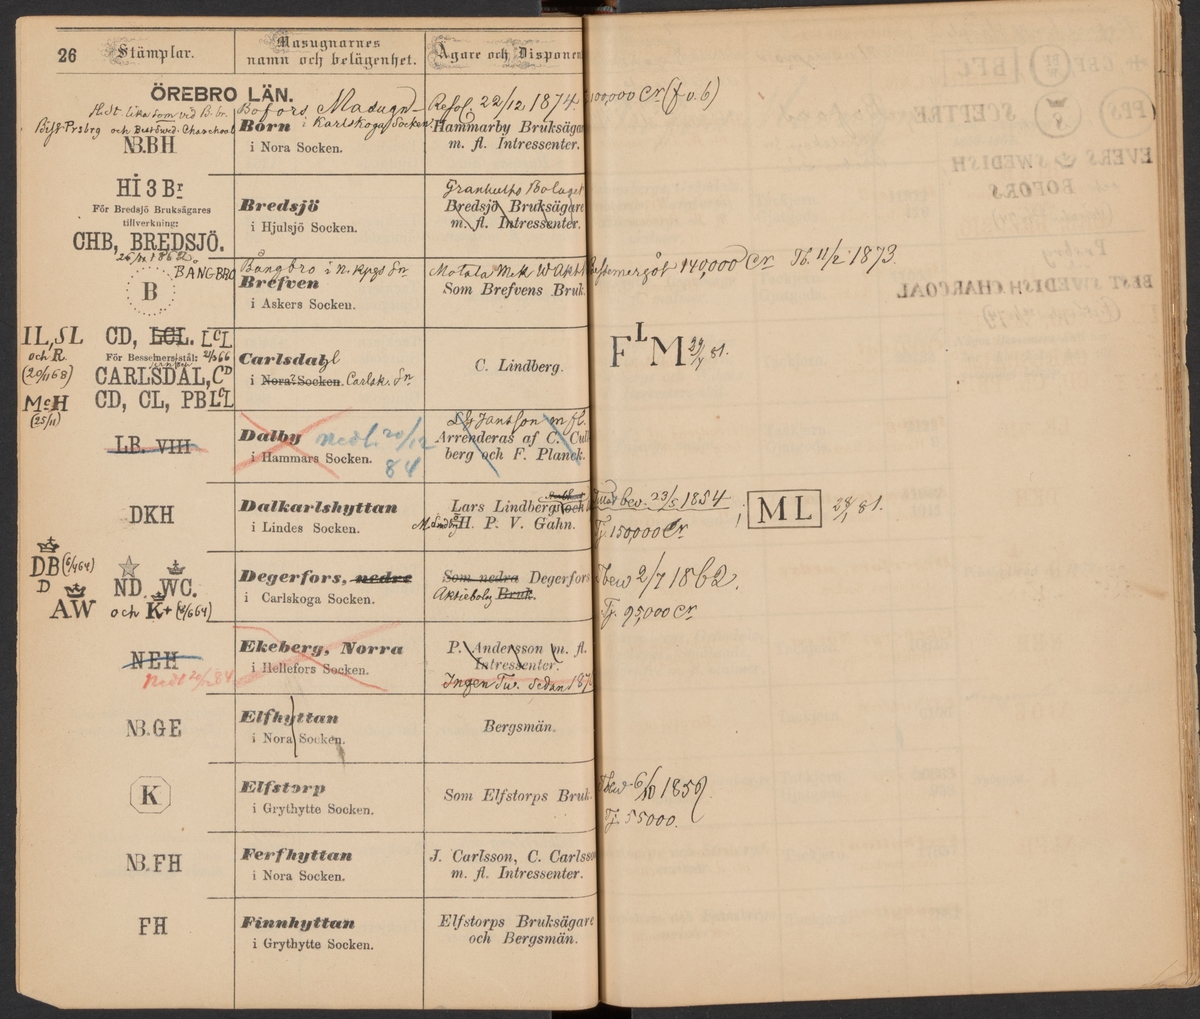 26
Stämplar.
Masugnarnes
namn och belägenhet.
Ägare och Disponen
ÖREBRO LÄN.
Bofors Masugn
i Karlskoga Socken.
Resol. 22/12 1874 100,000 Cr (f. o. b)
NB.BH
Born
i Nora Socken.
Hammarby Bruksägar
m. fl. Intressenter.
HI 3 Br
För Bredsjö Bruksägares
tillverkning:
CHB, BREDSJÖ.
Bredsjö
i Hjulsjö Socken.
Bolaget
Bredsjö Bruksägare
m. fl. Intressenter.
BÅNGBRO
Bångbro i N. Kpgs Sn
Motala Mek W Aktb
140,000 Cr Tb. 11/2 1873.
B
Brefven
i Askers Socken.
Som Brefvens Bruk.
IL, SL
och R
(20/11 68)
McH
(25/11)
CD, LCL. LCL
För Bessemersistål: 2/3 66
CARLSDAL, CD
CD, CL, PB LCL
Carlsdahl
i Nora Socken. Carlsk. Sn
C. Lindberg.
FLM 29/7 81.
LB. VIII
Dalby
i Hammars Socken.
nedl. 20/12
84
Arrenderas af C. Cull
berg och F. Planck.
DKH
Dalkarlshyttan
i Lindes Socken.
Lars Lindberg och
H. P. V. Gahn.
bev. 23/5 1854
Tj. 150,000 Cr
ML
28/1 81.
DB (6/4 64)
D
AW
ND. WC.
och K+ (2/6 64)
Degerfors, nedre
i Carlskoga Socken.
Som nedra Degerfors
Aktiebolag Bruk.
Tbew 2/7 1862.
Tj. 95,000 Cr
NEH
Nedl 20/12 84
Ekeberg, Norra
i Hellefors Socken.
P. Andersson m. fl.
Intressenter.
Ingen Tw. sedan 187
NB.GE
Elfhyttan
i Nora Socken.
Bergsmän.
K
Elfstorp
i Grythytte Socken.
Som Elfstorps Bruk.
Tbew 6/10 1859
Tj. 55000.
NB.FH
Ferfhyttan
i Nora Socken.
J. Carlsson, C. Carlsso
m. fl. Intressenter.
FH
Finnhyttan
i Grythytte Socken.
Elfstorps Bruksägare
och Bergsmän.